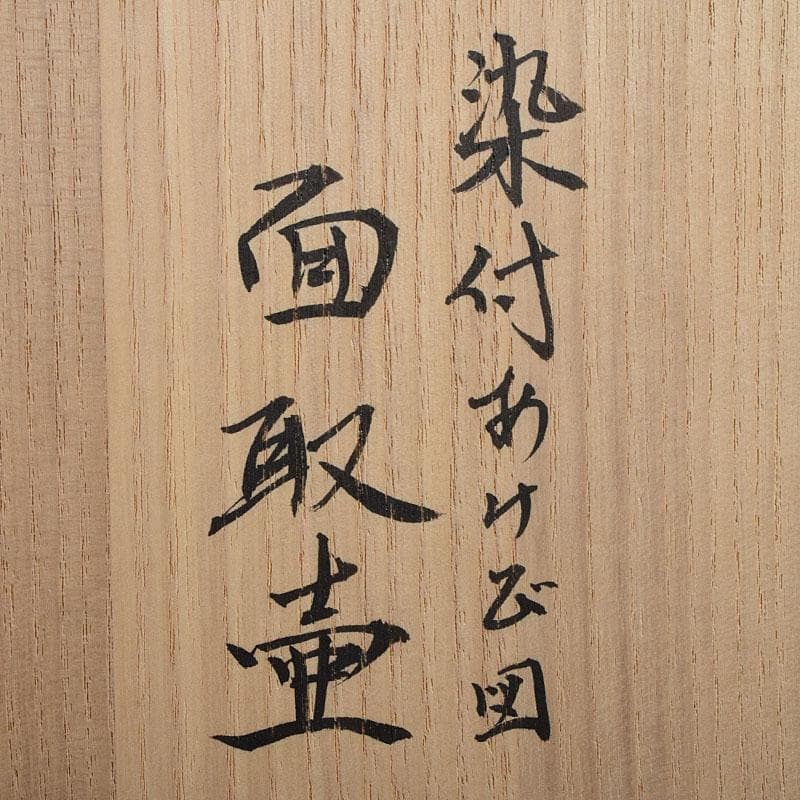 染付あけび図
面取壷